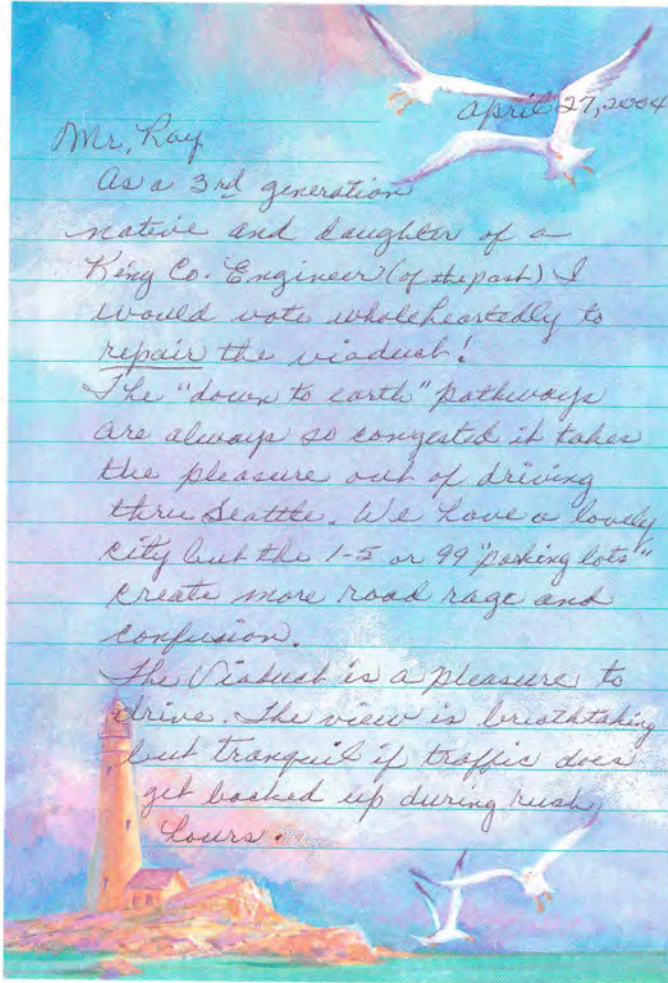 April 27, 2004
Mr. Ray
As a 3rd generation
native and daughter of a
King Co. Engineer (of the past) I
would vote wholeheartedly to
repair the viaduct!
The "down to earth" pathways
are always so congested it takes
the pleasure out of driving
thru Seattle. We have a lovely
city but the I-5 or 99 "parking lots"
create more road rage and
confusion.
The Viaduct is a pleasure to
drive. The view is breathtaking
but tranquil if traffic does
get backed up during rush
hours.